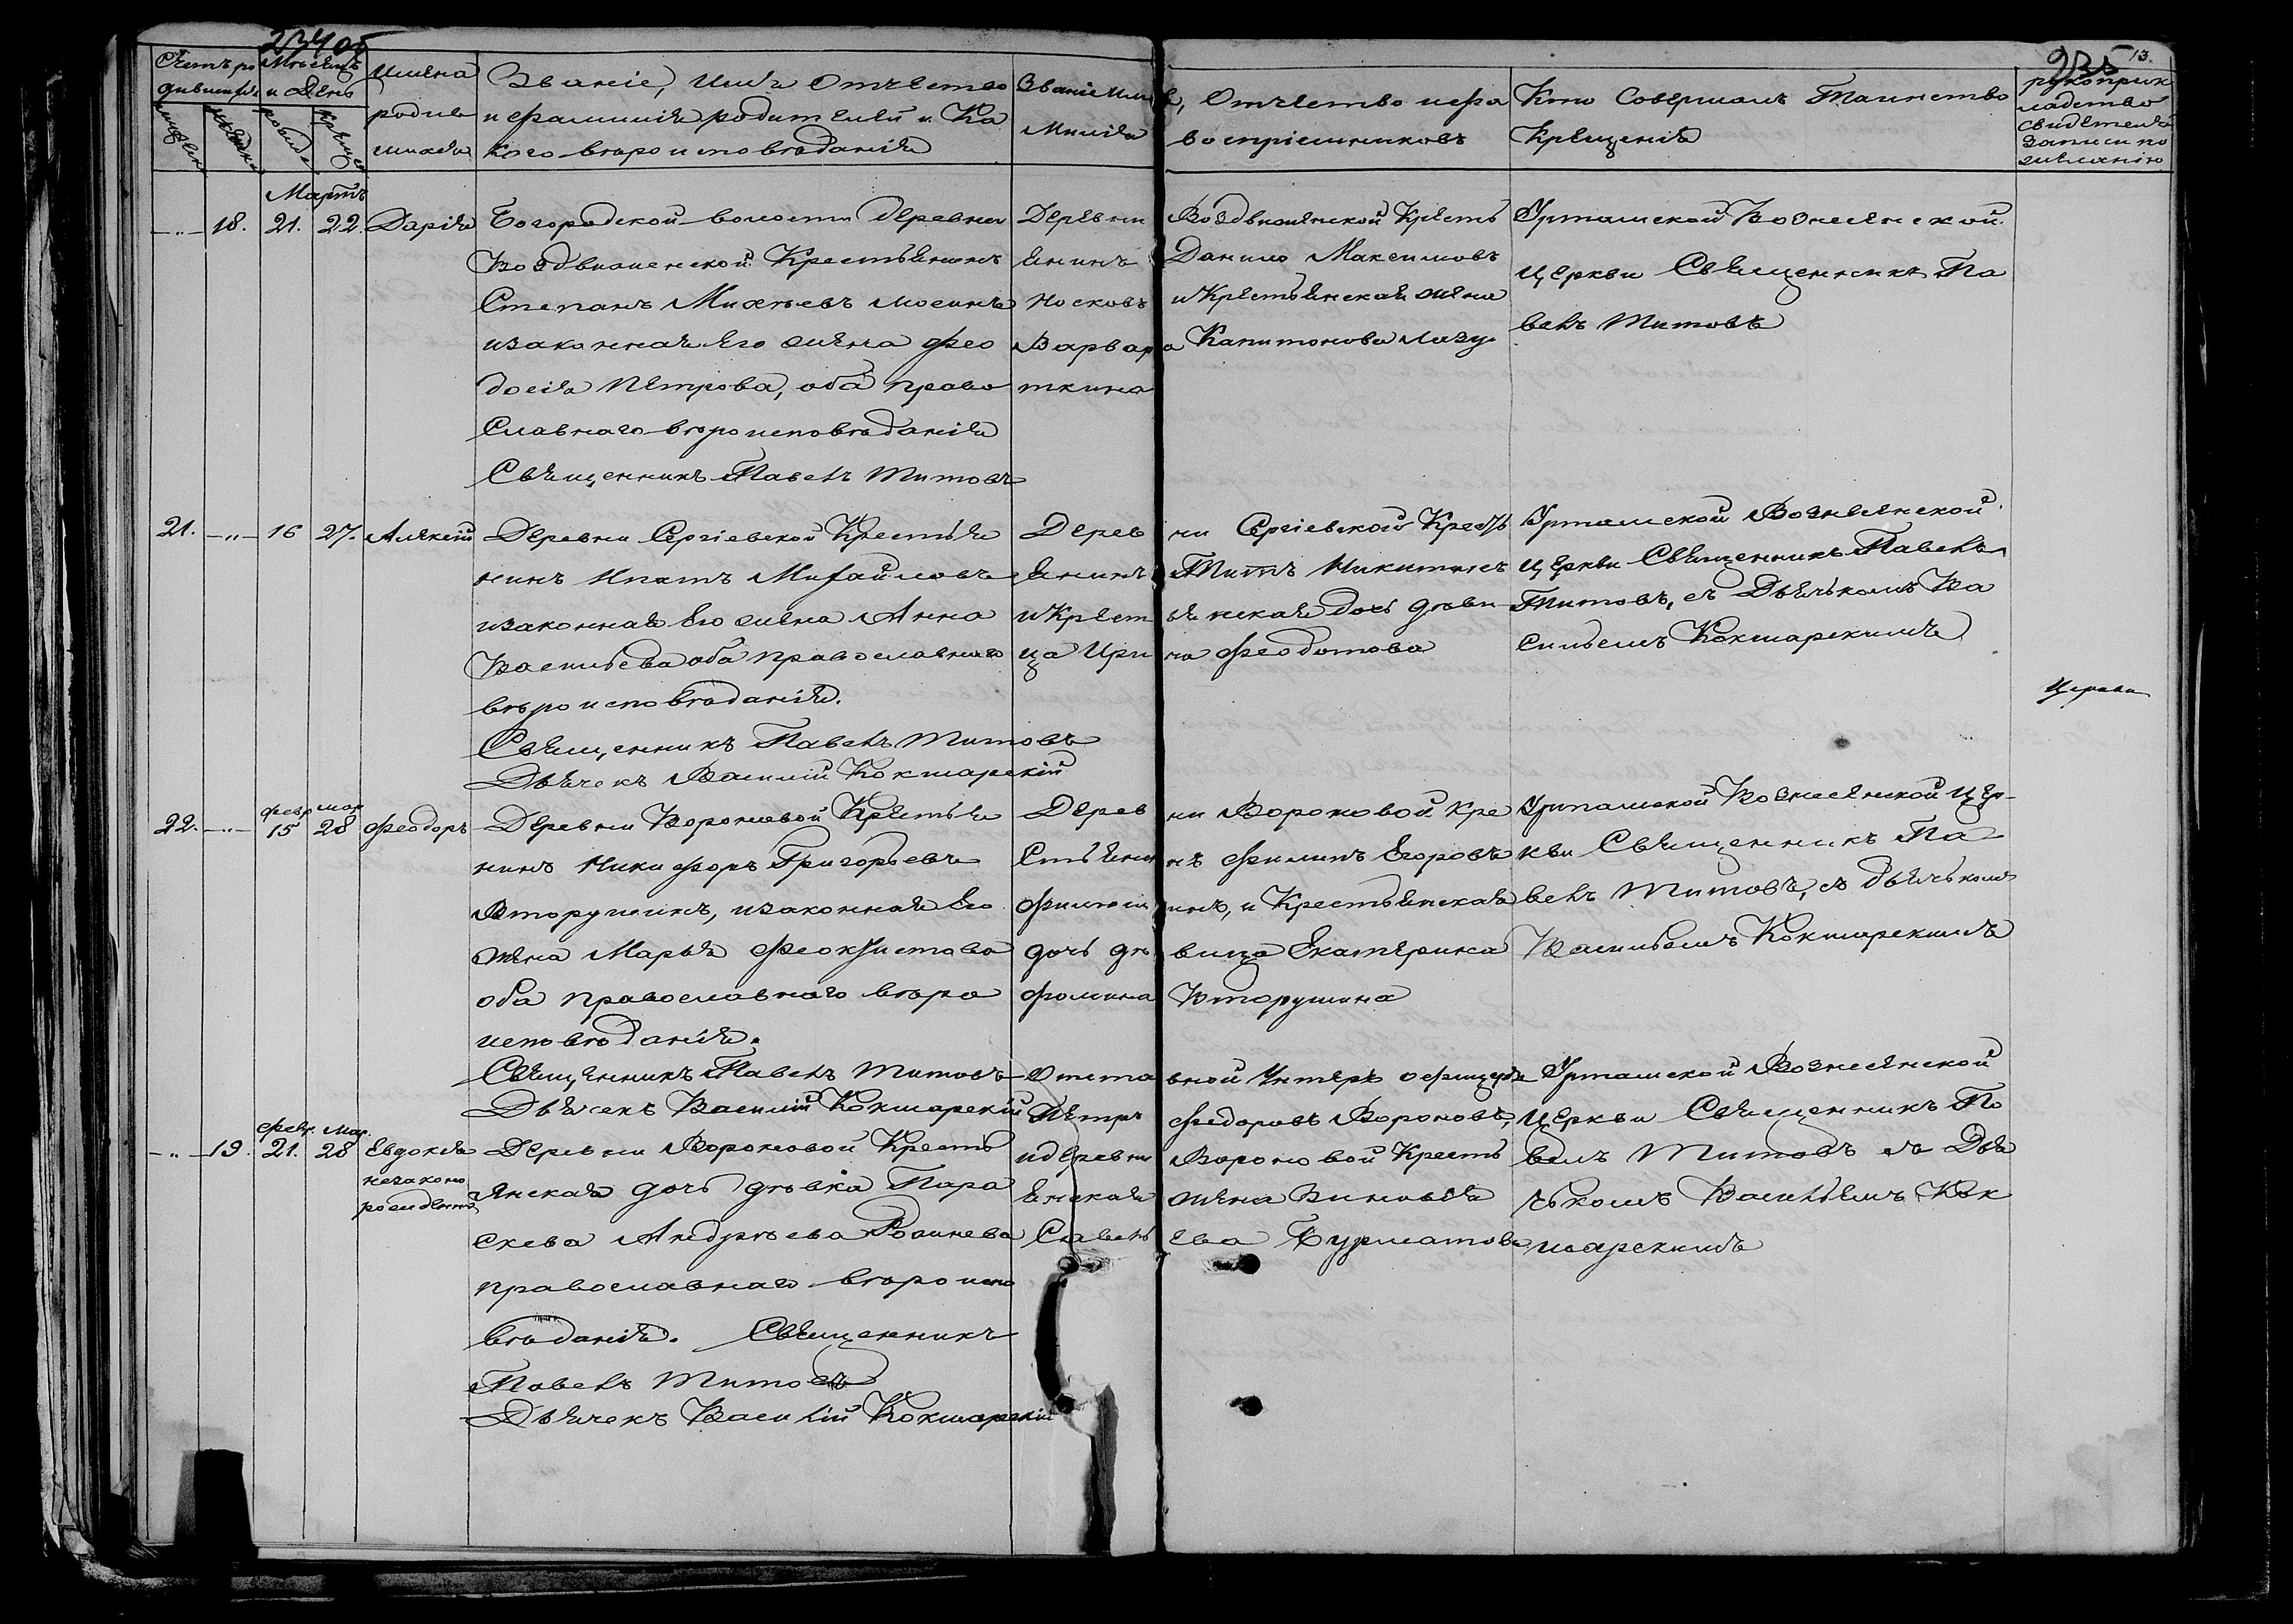 234 об
235
13.
Счетъ ро Мѣсяцъ
дившихся и День
Имена
родив
шихся
Званіе, Имя Отчество
и фамилія родителей и Ка
кого вѣроисповѣданія
Званіе Имя, Отчество и фа
милія воспріемниковъ
Кто Совершалъ Таинство
Крещенія
рукоприк
ладство
свидѣтелей
записи по
желанію
Мартъ
18. 21. 22. Дарія
Богородской волости деревни
Воздвиженской Крестьянинъ
Степанъ Михѣевъ Мосинъ
и законная Его жена Фео
досія Петрова, оба право
Славнаго вѣроисповѣданія
Священникъ Павелъ Титовъ
Деревни Воздвиженской Кресть
янинъ Данило Максимовъ
Носковъ и Крестьянская жена
Варвара Капитонова Лазу
ткина
Урташской Вознесенской
церкви Священникъ Па
велъ Титовъ
21. 16 27. Алексій
Деревни Сергіевской Крестья
нинъ Ипатъ Михайловъ
и законная Его жена Анна
Васильева оба православнаго
вѣроисповѣданія.
Священникъ Павелъ Титовъ
Дьячекъ Василій Кокшарскій
Деревни Сергіевской Кресть
янинъ Титъ Никитинъ
и Крестьянская дочь дѣви
ца Ирина Феодотова
Урташской Вознесенской
церкви Священникъ Павелъ
Титовъ, съ Дьячькомъ Ва
сильемъ Кокшарскимъ
Церкви
22. февр 15 мар 28 Феодоръ
Деревни Вороновой Крестья
нинъ Никифоръ Григорьевъ
Вторушинъ, и законная Его
жена Марья Феоктистова
оба православнаго вѣро
исповѣданія.
Священникъ Павелъ Титовъ
Дьячекъ Василій Кокшарскій
Деревни Вороновой Кре
стьянинъ Филипъ Егоровъ
инъ, и Крестьянская
дочь дѣвица Екатерина
Фомина Вторушина
Урташской Вознесенской Цер-
кви Священникъ Па
велъ Титовъ, съ дьячькомъ
Васильемъ Кокшарскимъ
19. февр. 21. Мар. 28 Евдокія
незаконо
рожденная
Деревни Вороновой Кресть
янская дочь дѣвка Пара
скева Андрѣева
православнаго вѣроиспо
вѣданія. Священникъ
Павелъ Титовъ
Дьячекъ Василій Кокшарскій
Отставной Унтеръ офицеръ
Петръ Федоровъ Вороновъ,
и деревни Вороновой Кресть
янская жена Зиновія
Савельева Бурматова
Урташской Вознесенской
Церкви Священникъ Па
велъ Титовъ съ Дья
чькомъ Васильемъ Кок
шарскимъ